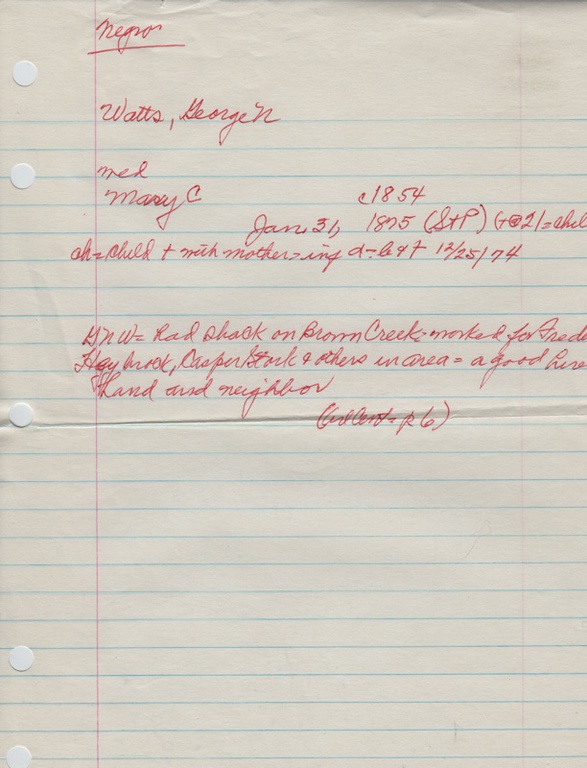 Negros
Watts, George N
med
Mary C c1854
Jan. 31, 1875 (S+P) (+@21=chil
ch=child + with mother= inf d= 12/25/74
GNW= Had shack on Brown Creek= worked for Frede
Haybrook, Casper Stork & others in area = a good hire
hand and neighbor
p 6)